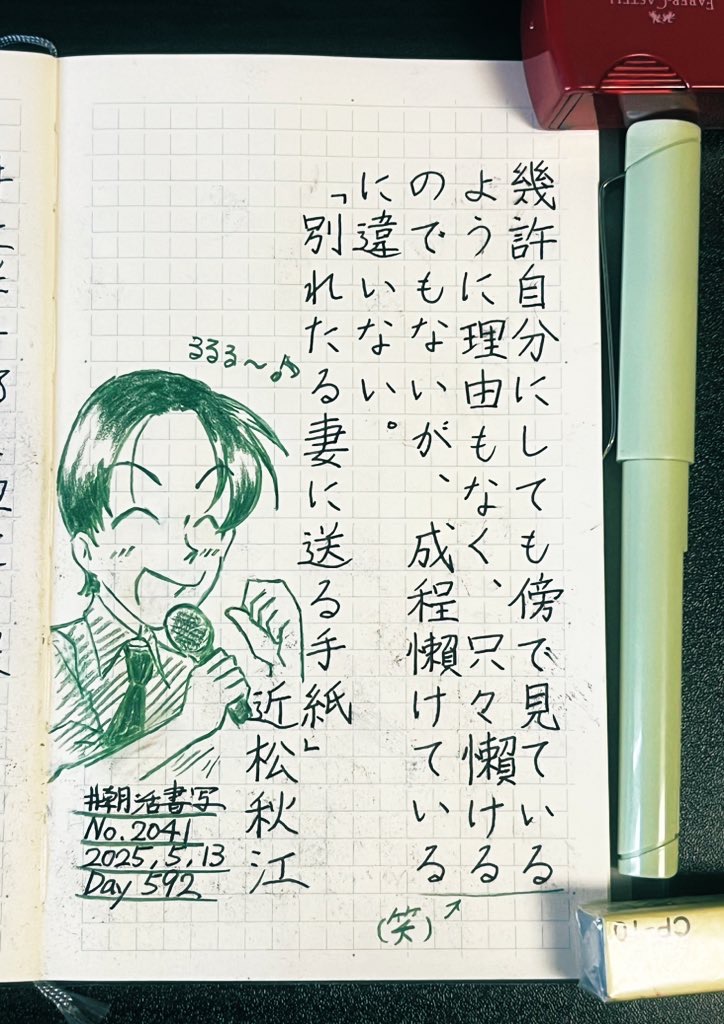 幾許自分にしても傍で見ている
ように理由もなく、只々懶ける
のでもないが、成程懶けている
に違いない。
「別れたる妻に送る手紙」
近松秋江
(笑)
るるる〜♪
#朝活書写
No.2041
2025,5,13
Day 592
FABER-CASTELL
CP-10